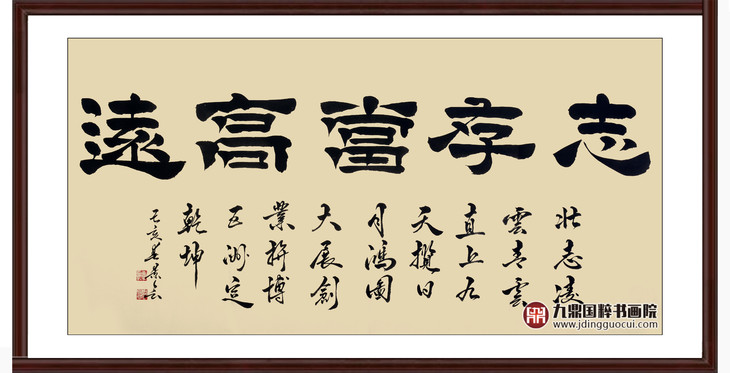 志存當高遠
壯志凌
雲青雲
直上九
天攬日
月鴻圖
大展創
業拼搏
五洲定
乾坤
己亥
九鼎国粹书画院
www.jdingguocui.com